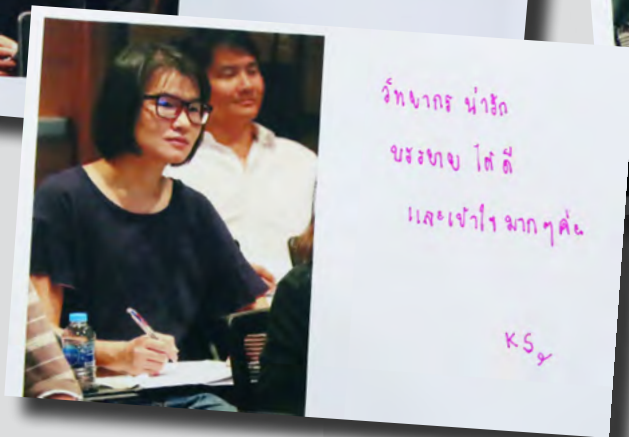 วิทยากร น่ารัก
บรรยาย ได้ ดี
และเข้าใจ มาก ๆ ค่ะ